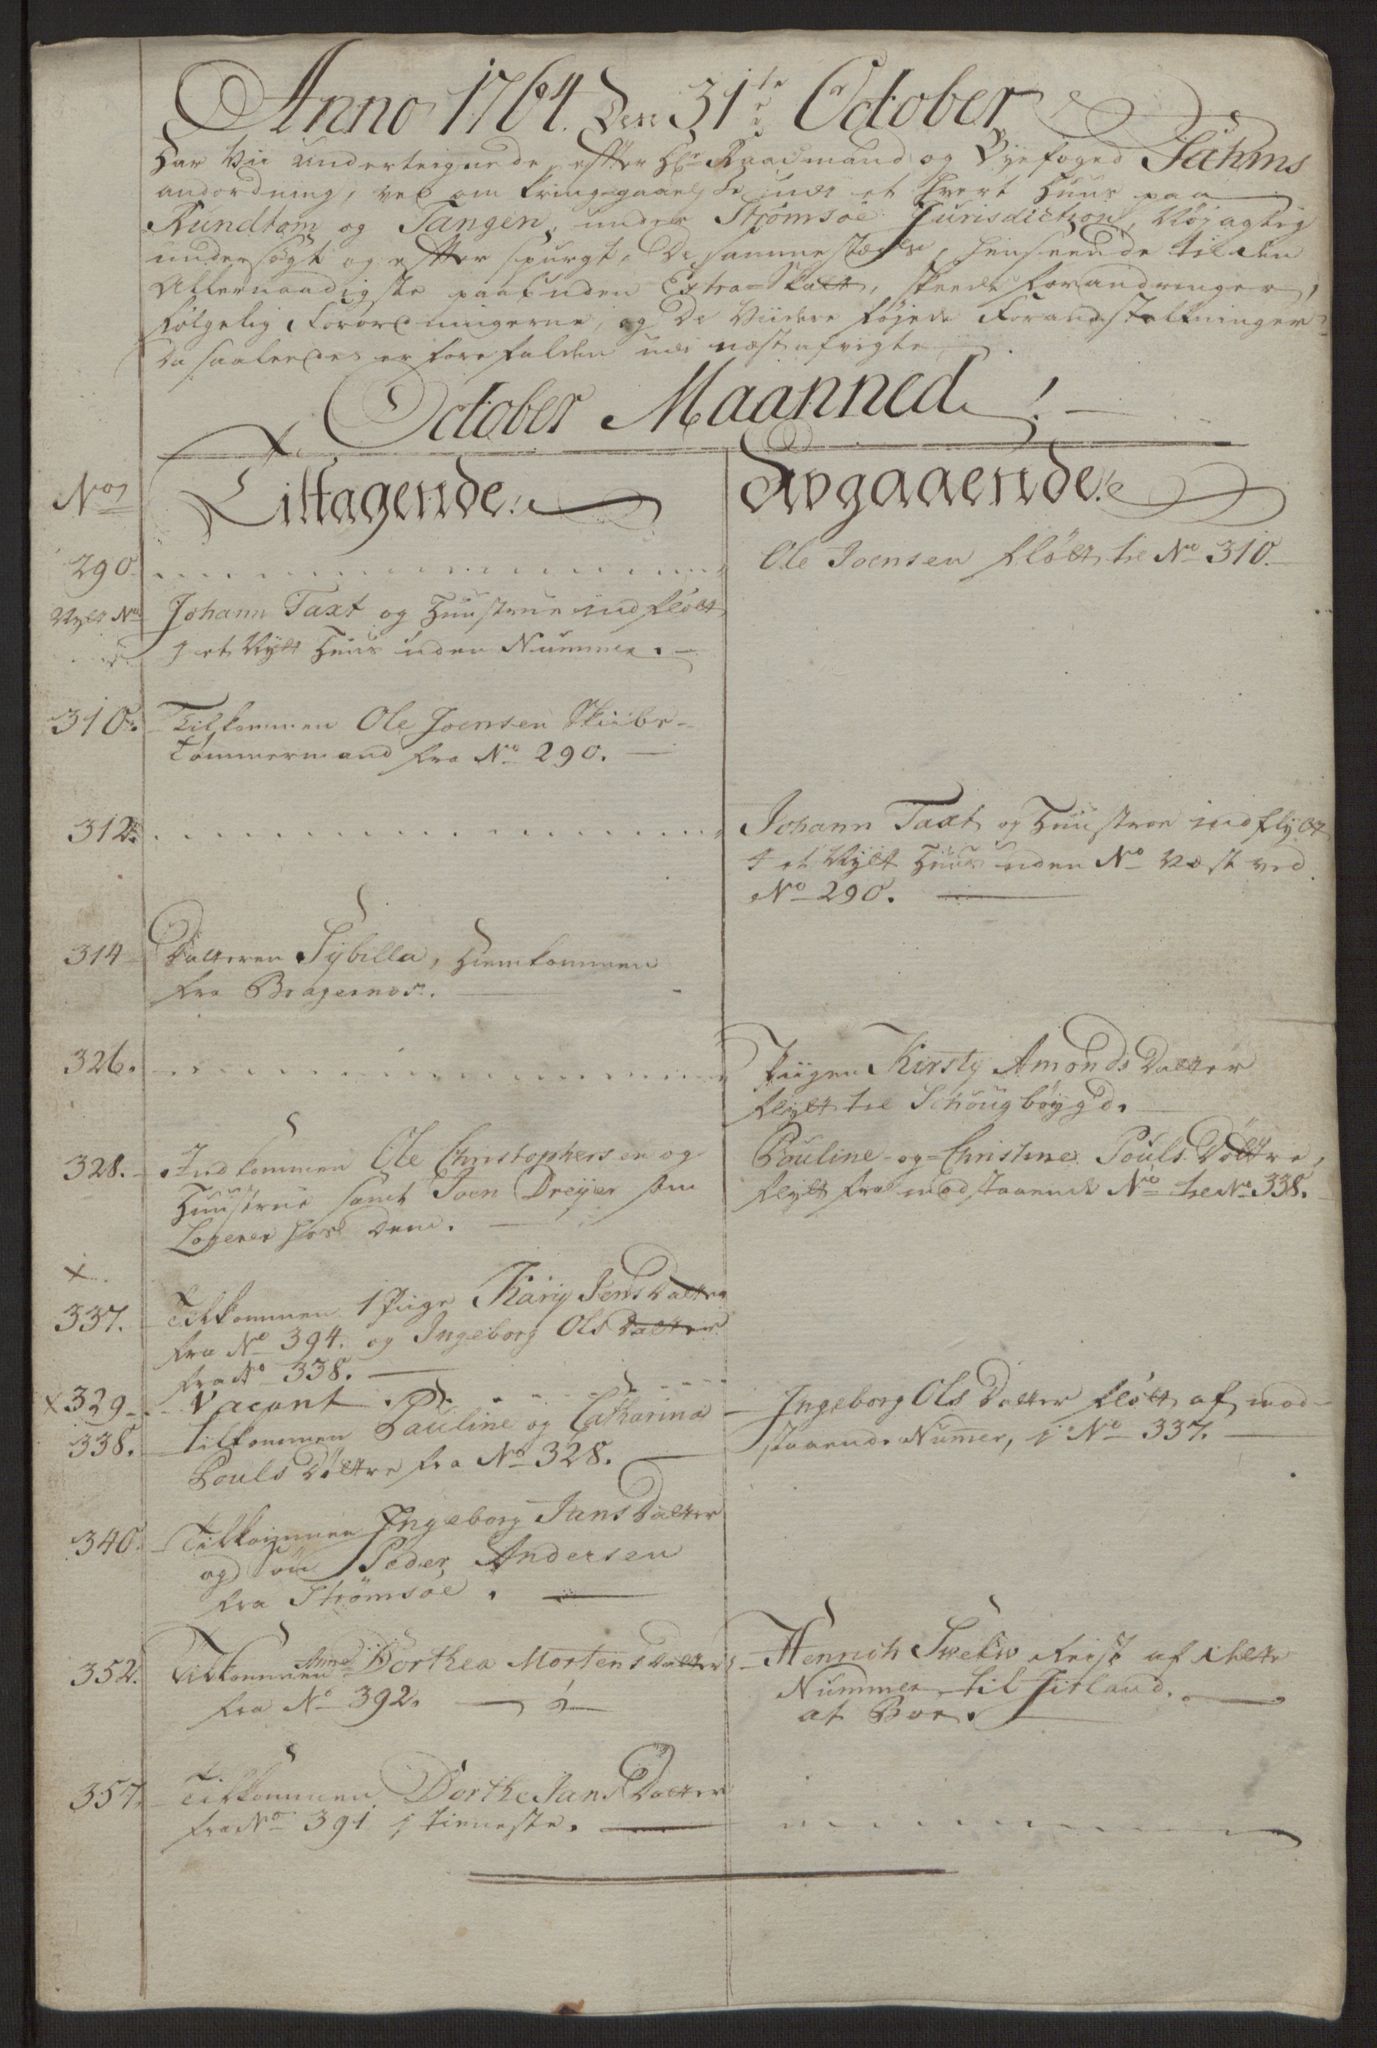 Anno 1764. Den 31te October
Har Vii underteignede, efter Hr Raadmand og Byefoged Jahms
andordning, ved om kring-gaaelse udi et Hvert Huus paa
Rundtom og Tangen, under Strømsøe Jurisdiction, Nøjagtig
undersøgt og efter spurgt, De sammestæds, henseende til den
Allernaadigste paabuden Extra-Skatt, skeede forandringer,
følgelig Forordningerne, og De Viidere føjede Foranstaltninger
Da saaledes er forefalden udi næst afvigte
October Maanned
No
Tiltagende:
Avgaaende:
290
Ole Joensen fløtt til No 310.
Nytt No
Johann Taxt og Huustrue indfløtt
I et Nytt Huus uden Nummer.
310.
Tilkommen Ole Joensen Skiibs-
Tømmermand fra No 290.
312.
Johann Taxt og Huustroe indflytt
I et Nytt Huus uden No Næst ved
No 290.
314
Datteren Sybilla, Hiemkommen
fra Bragernes.
326.
Piigen Kirsty Amonds Datter
flytt til Schougbøygd.
328.
Indkommen Ole Christophersen og
Huustrue samt Joen Dreyer som
Logerer hos Dem.
Pouline og Christine Pouls Døttre,
flytt fra modstaaende No til No 338.
x
337.
Tilkommen 1 Piige Kary Jens Datter
fra No 394. og Ingeborg Ols Datter
fra No 338.
x 329
Vacant
338.
tilkommen Pauline og Catharina
Pouls Døttre fra No 328.
Ingeborg Ols Datter fløtt af mod-
staaende Numer, i No 337.
340.
Tilkommen Ingeborg Jans Datter
og Søn Peder Andersen
fra Strømsøe.
352.
Tilkommen Anne Dorthea Mortens Datter
fra No 392.
Hennich Reist af dette
Nummer til Jitland.
at Boe.
357.
Tilkommen Dorthe Jans Datter
fra No 391 i tieneste.